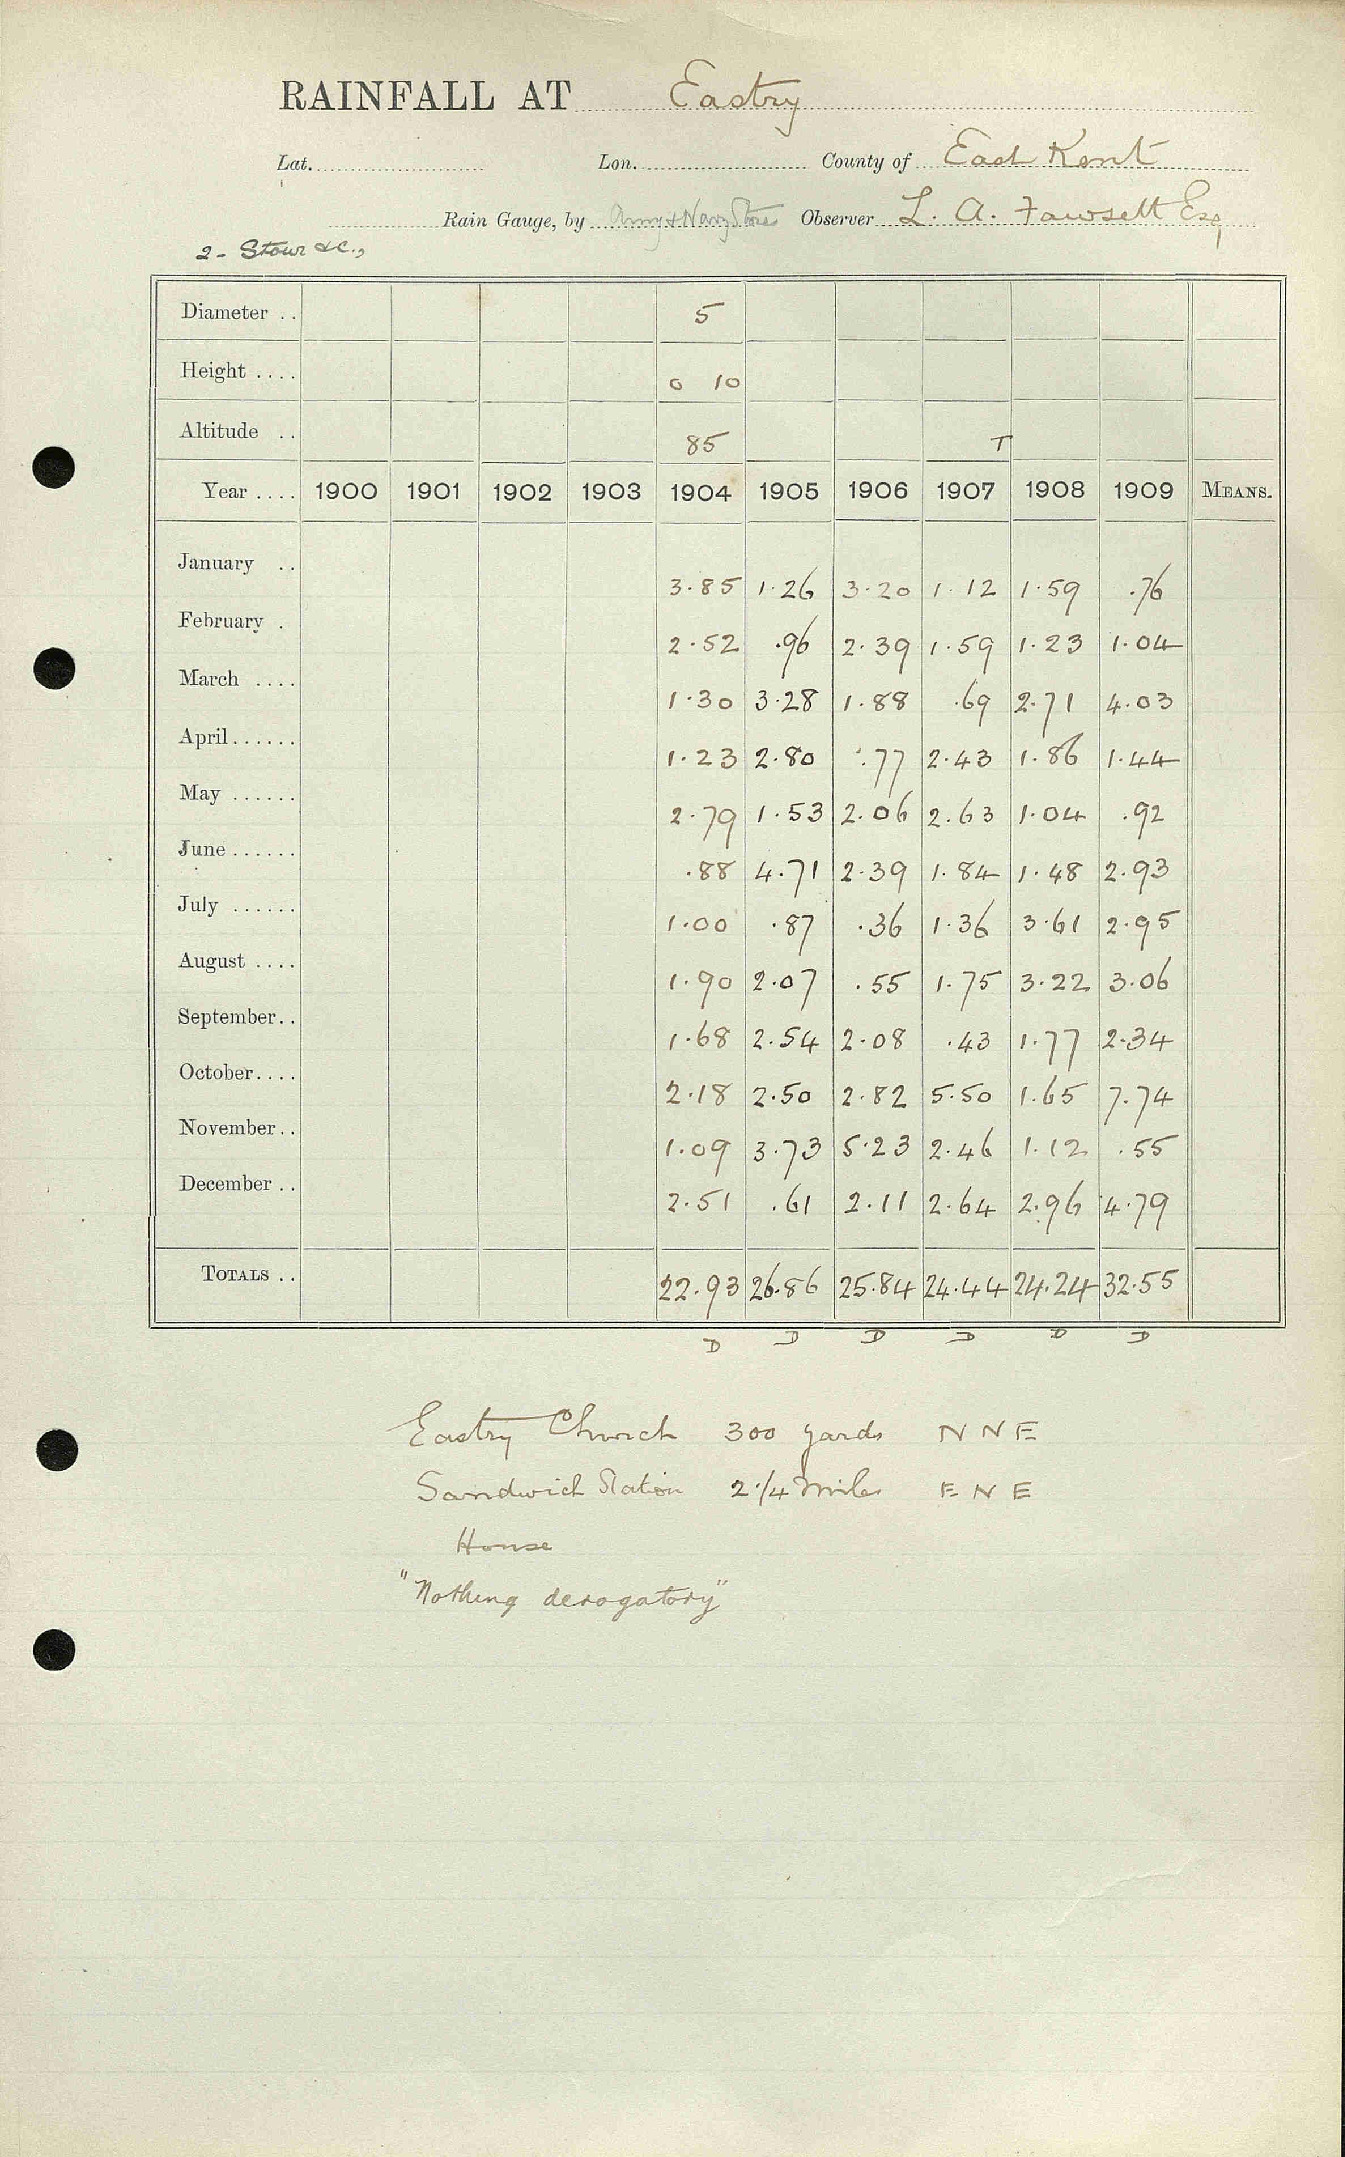 RAINFALL AT Eastry
Lat. Lon. County of East Kent
Rain Gauge, by Army & Navy Stores Observer L. A. Fawsett Esq
2 - Stour &c.,
Diameter .. 5
Height .... 0 10
Altitude .. 85 T
Year .... 1900 1901 1902 1903 1904 1905 1906 1907 1908 1909 MEANS.
January .. 3.85 1.26 3.20 1.12 1.59 .76
February . 2.52 .96 2.39 1.59 1.23 1.04
March .... 1.30 3.28 1.88 .69 2.71 4.03
April...... 1.23 2.80 .77 2.43 1.86 1.44
May ...... 2.79 1.53 2.06 2.63 1.04 .92
June...... .88 4.71 2.39 1.84 1.48 2.93
July ...... 1.00 .87 .36 1.36 3.61 2.95
August .... 1.90 2.07 .55 1.75 3.22 3.06
September.. 1.68 2.54 2.08 .43 1.77 2.34
October.... 2.18 2.50 2.82 5.50 1.65 7.74
November.. 1.09 3.73 5.23 2.46 1.12 .55
December .. 2.51 .61 2.11 2.64 2.96 4.79
TOTALS .. 22.93 26.86 25.84 24.44 24.24 32.55
D D D D D D
Eastry Church 300 yards N N E
Sandwich Station 2 1/4 miles E N E
House
"Nothing derogatory"